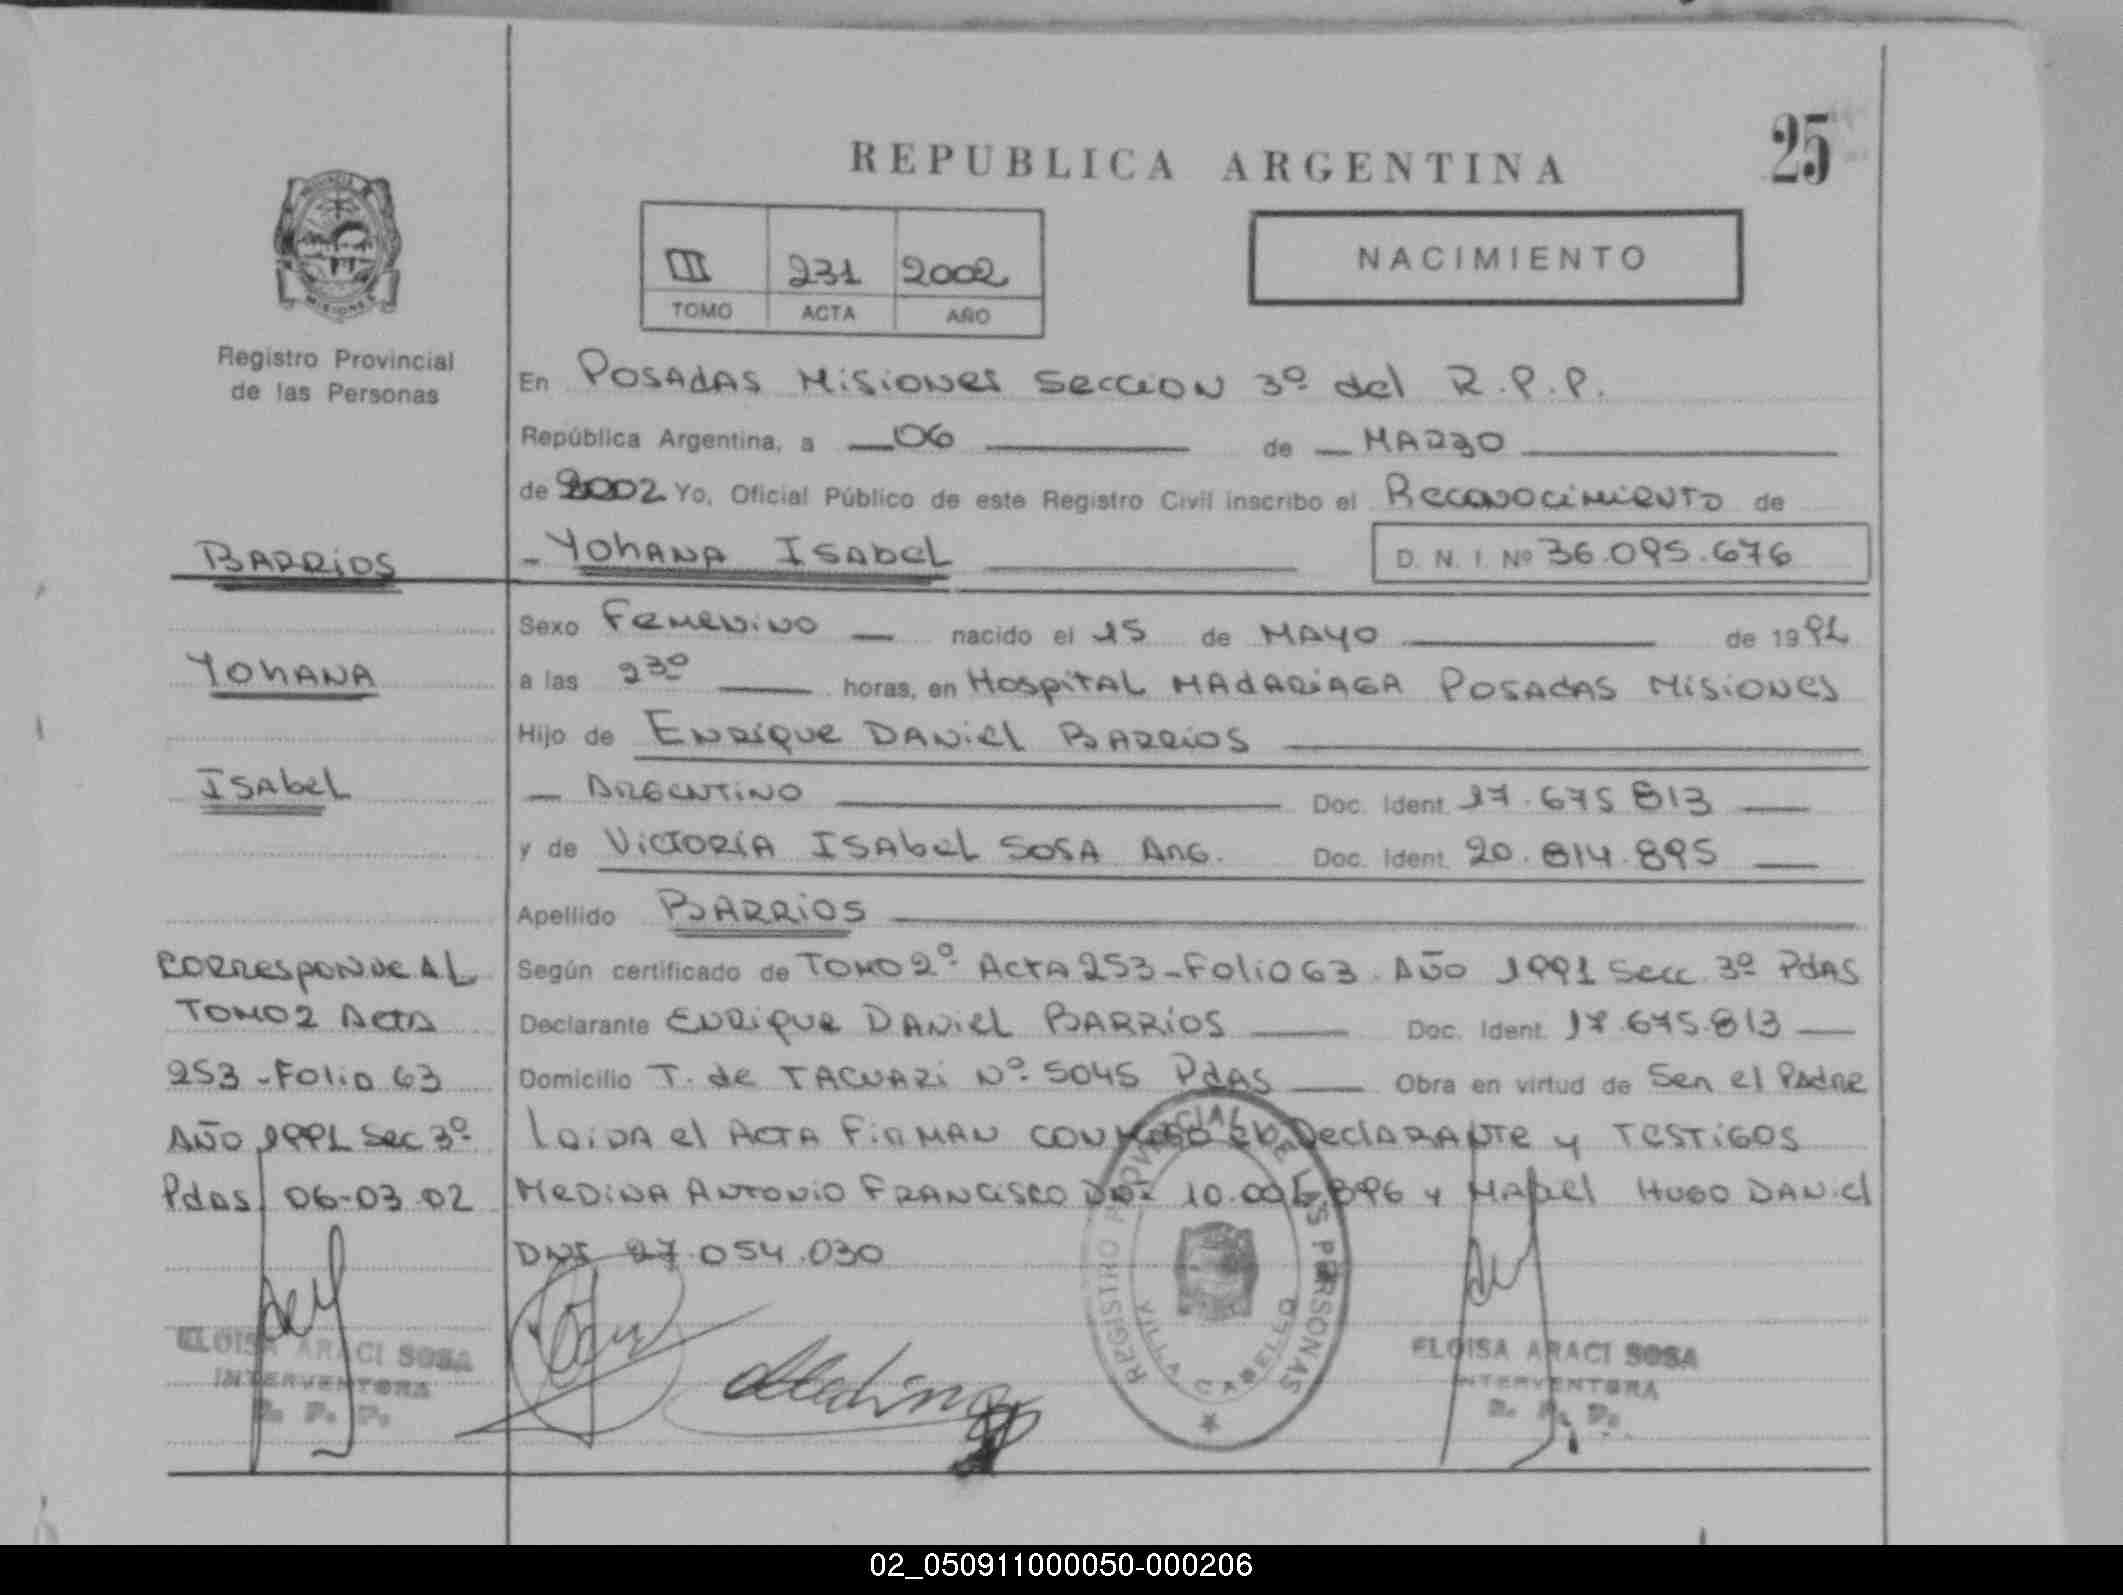 25
REPUBLICA ARGENTINA
PROVINCIA DE
MISIONES
Registro Provincial
de las Personas
III 231 2002
TOMO ACTA AÑO
NACIMIENTO
En POSADAS MISIONES SECCION 3º del R.P.P.
República Argentina, a 06 de MARZO
de 2002 Yo, Oficial Público de este Registro Civil inscribo el Reconocimiento de
YOHANA ISABEL D. N. I. Nº 36.095.676
Sexo Femenino nacido el 15 de MAYO de 1991
a las 23º horas, en Hospital MADARIAGA POSADAS MISIONES
Hijo de ENRIQUE DANIEL BARRIOS
ARGENTINO Doc. Ident. 17.675.813
y de VICTORIA ISABEL SOSA ARG. Doc. Ident. 20.814.895
Apellido BARRIOS
Según certificado de TOMO 2º ACTA 253-Folio 63. AÑO 1991 Secc. 3º PdAS
Declarante ENRIQUE DANIEL BARRIOS Doc. Ident. 17.675.813
Domicilio T. de TACUARI Nº 5045 PdAS Obra en virtud de Ser el Padre
Leida el ACTA FIRMAN CONMIGO EL DeclARANTE y TESTIGOS
MEDINA ANTONIO FRANCISCO 896 y HUGO DANIEL
DNI 27.054.030
BARRIOS
YOHANA
ISABEL
CORRESPONDE AL
TOMO 2 ACTA
253-Folio 63
AÑO 1991 Sec 3º
PdAS 06-03-02
ELOISA ARACI SOSA
INTERVENTORA
R. P. P.
Medina
REGISTRO PROVINCIAL DE LAS PERSONAS
VILLA CABELLO
ELOISA ARACI SOSA
INTERVENTORA
R. P. P.
02_050911000050-000206